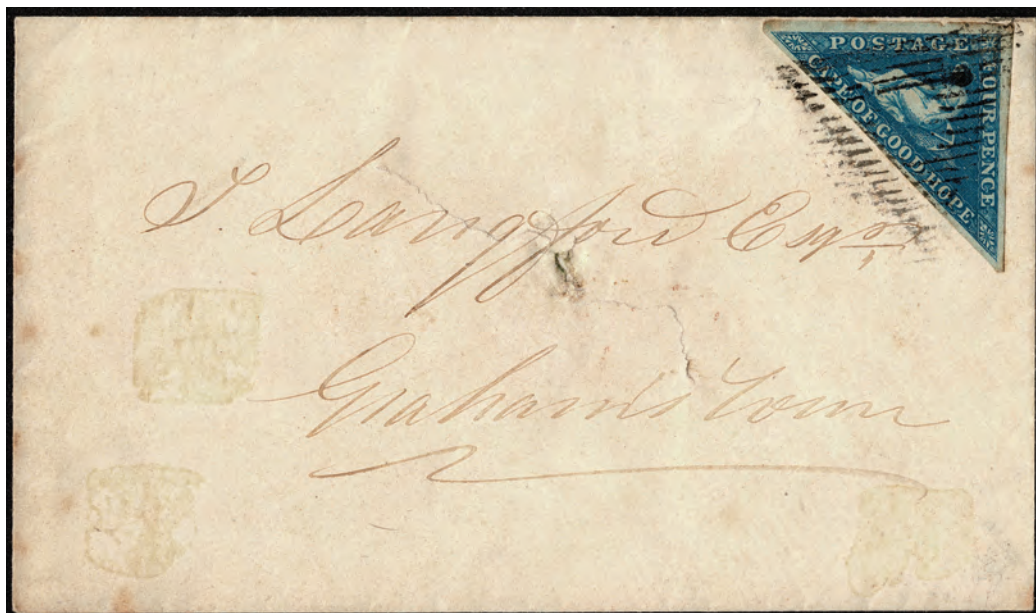 POSTAGE
FOUR PENCE
CAPE OF GOOD HOPE
S Langford Esqre,
Graham's Town